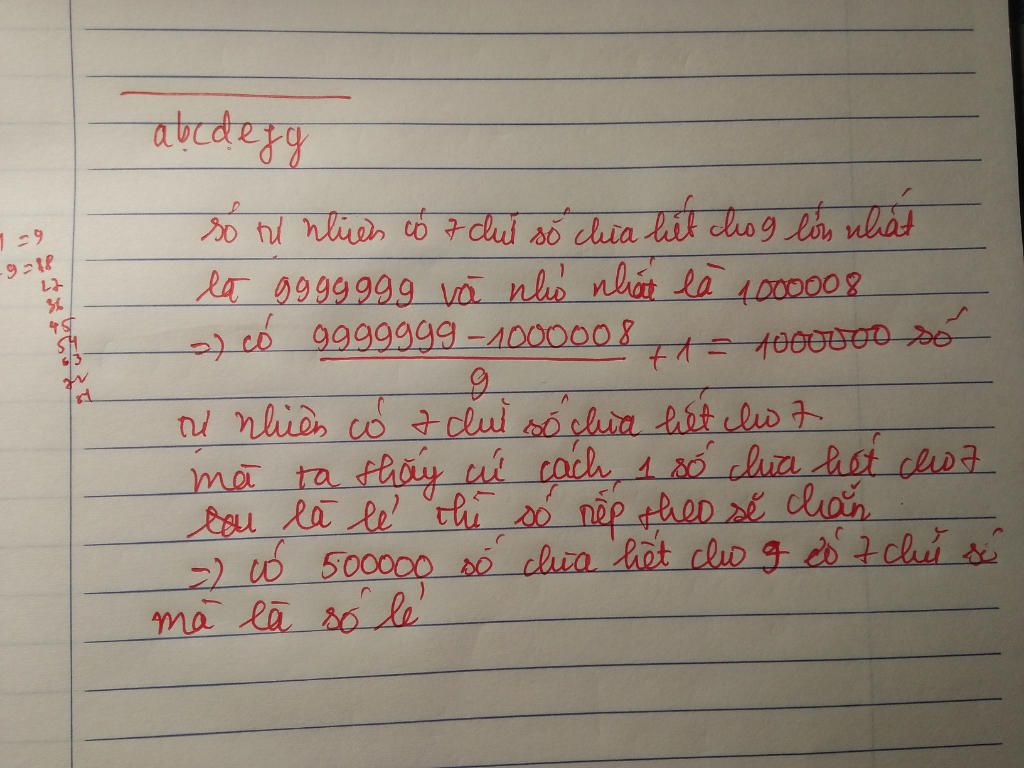 abcdefg
số tự nhiên có 7 chữ số chia hết cho 9 lớn nhất
là 9999999 và nhỏ nhất là 1000008
=) có 9999999 - 1000008 / 9 + 1 = 1000000 số
tự nhiên có 7 chữ số chia hết cho 7.
mà ta thấy cứ cách 1 số chia hết cho 7
là lẻ thì số tiếp theo sẽ chẵn
=) có 500000 số chia hết cho 9 có 7 chữ số
mà là số lẻ
1 = 9
9 = 18
27
36
45
54
63
72
81